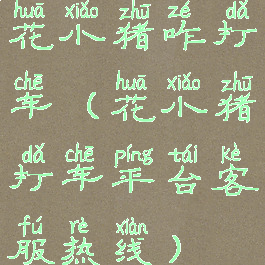 huā xiǎo zhū zé dǎ
花小猪咋打
chē huā xiǎo zhū
车（花小猪
dǎ chē píng tái kè
打车平台客
fú rè xiàn
服热线）